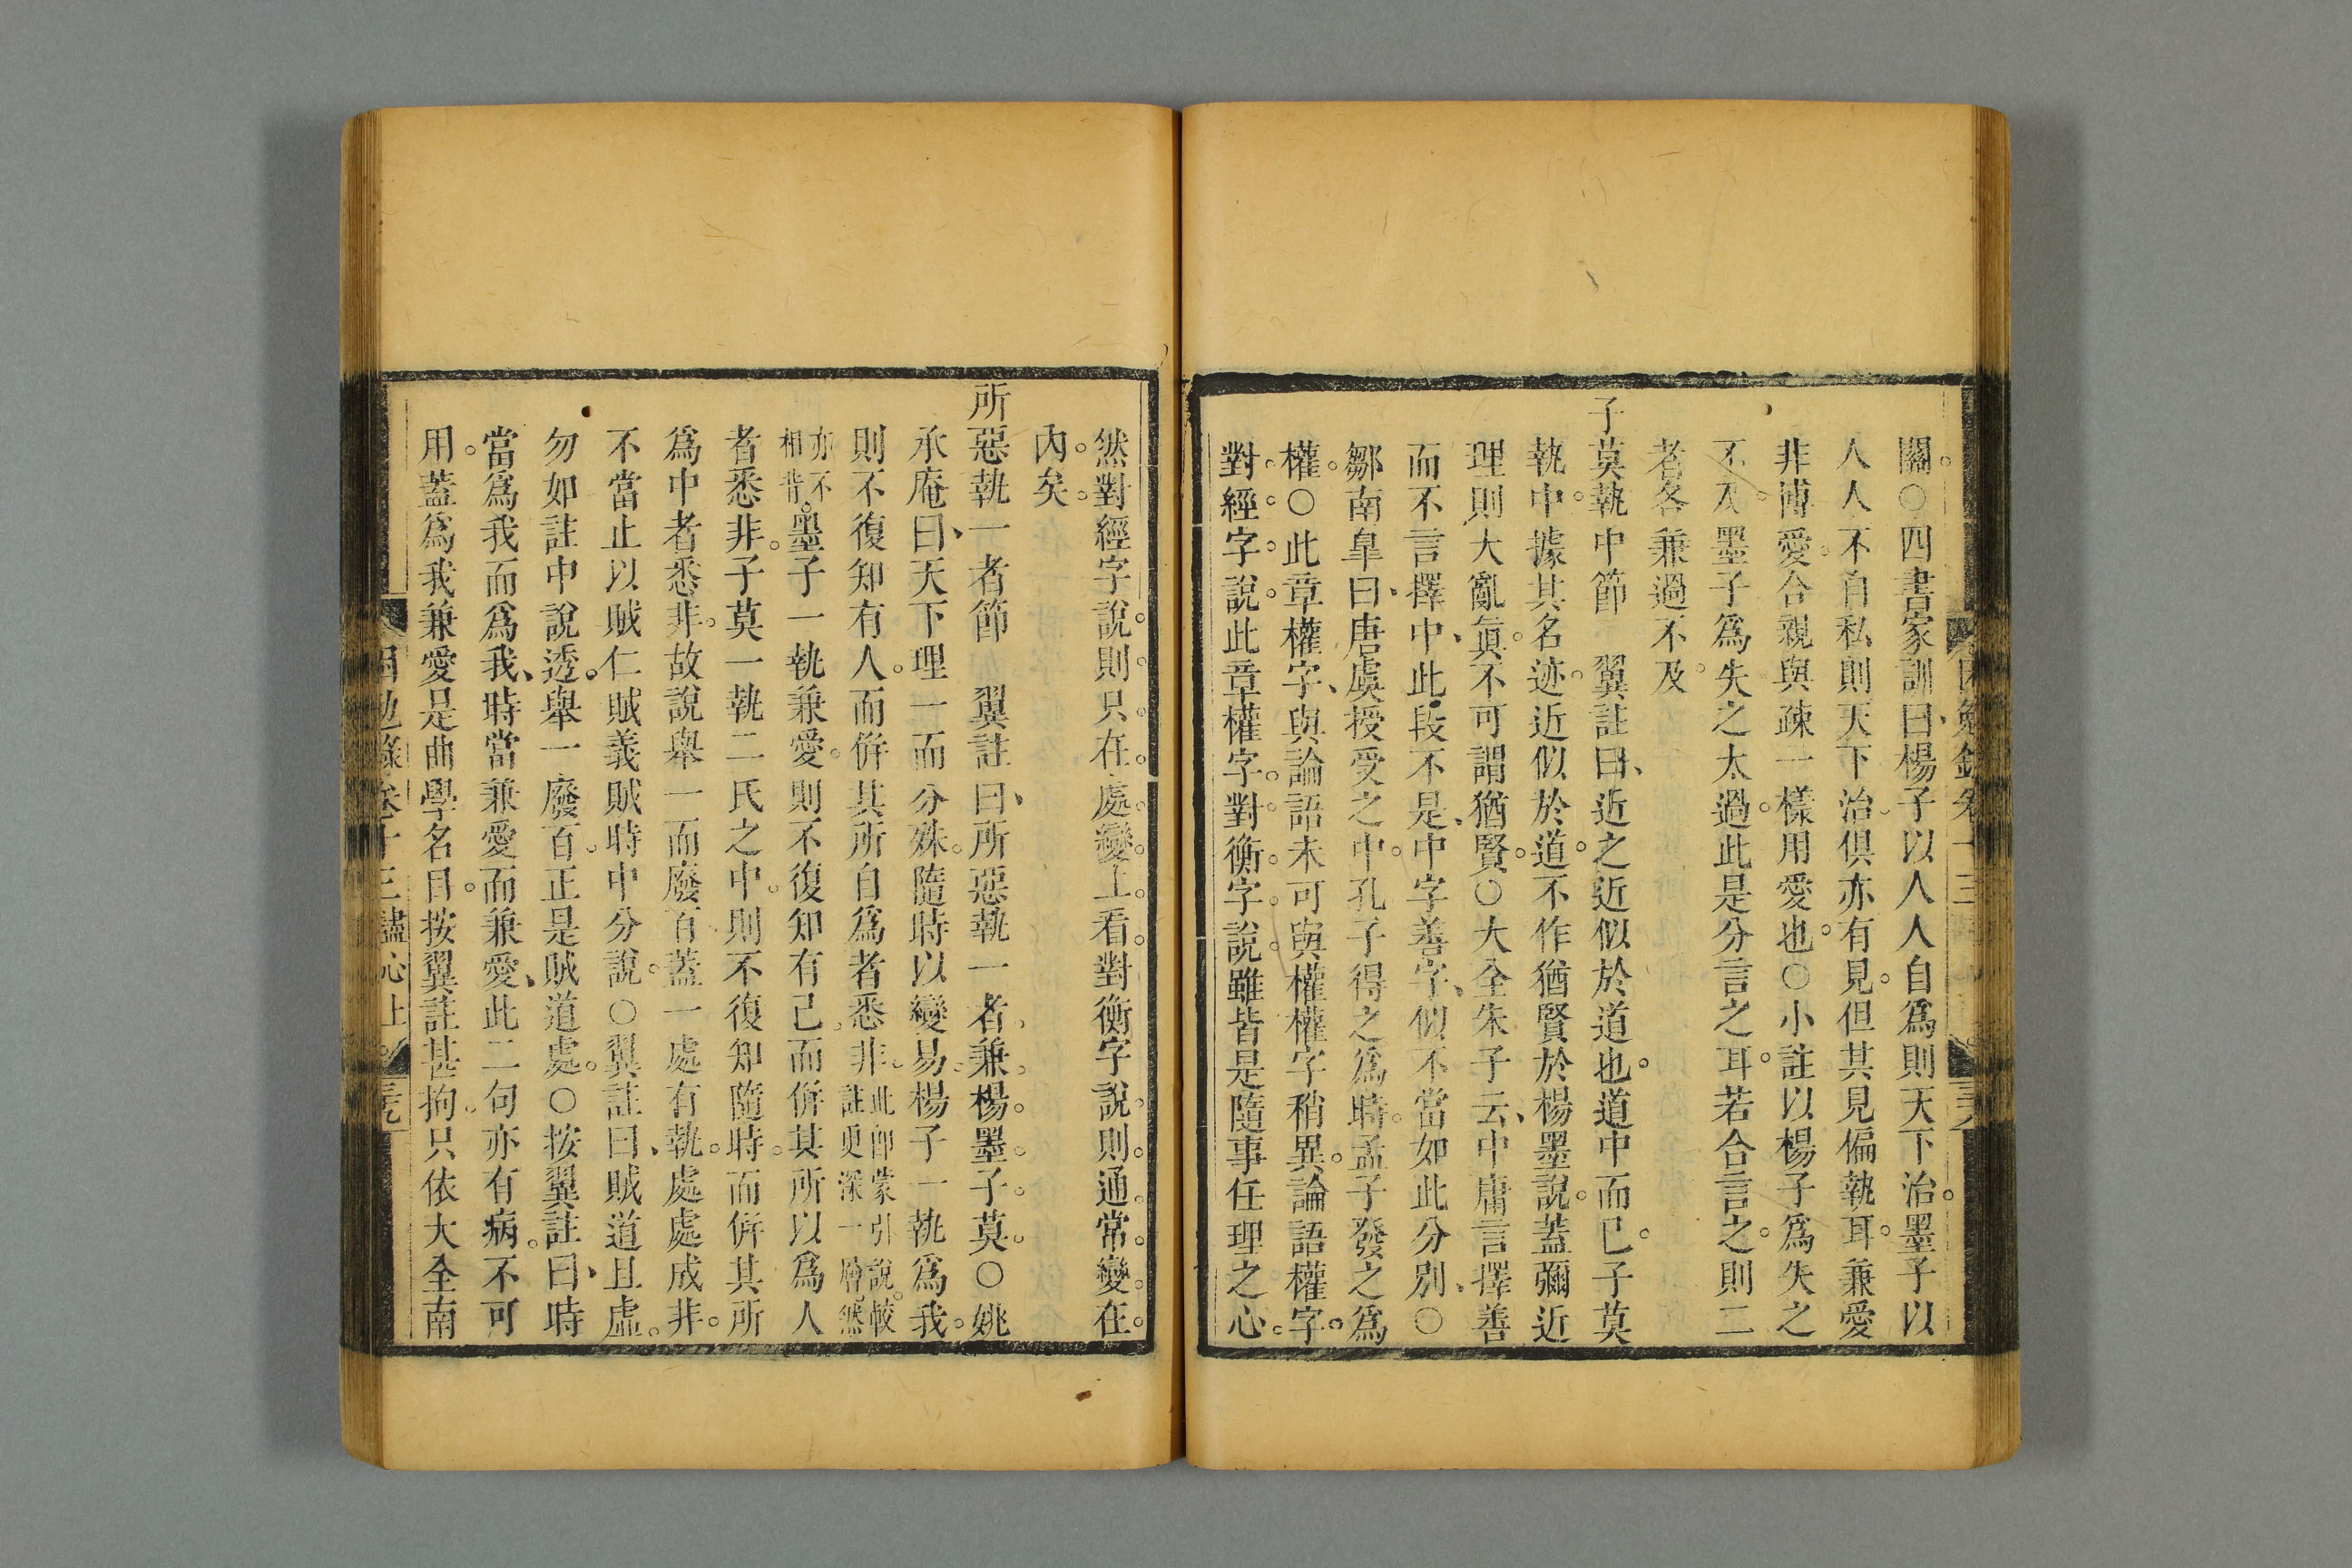 關○四書家訓曰楊子以人人自爲則天下治墨子以
人人不自私則天下治俱亦有見但其見偏執耳兼愛
非博愛合親與疎一樣用愛也○小註以楊子爲失之
不及墨子爲失之太過此是分言之耳若合言之則二
者各兼過不及
子莫執中節　翼註曰近之近似於道也道中而已子莫
執中據其名迹近似於道不作猶賢於楊墨說蓋彌近
理則大亂眞不可謂猶賢○大全朱子云中庸言擇善
而不言擇中此段不是中字善字似不當如此分別○
鄒南臯曰唐虞授受之中孔子得之爲時孟子發之爲
權○此章權字與論語未可與權權字稍異論語權字
對經字說此章權字對衡字說雖皆是隨事任理之心
然對經字說則只在處變上看對衡字說則通常變在
內矣
所惡執一者節　翼註曰所惡執一者兼楊墨子莫○姚
承庵曰天下理一而分殊隨時以變易楊子一執爲我
則不復知有人而併其所自爲者悉非此卽蒙引說較註更深一層然
亦不相背墨子一執兼愛則不復知有己而併其所以爲人
者悉非子莫一執二氏之中則不復知隨時而併其所
爲中者悉非故說舉一而廢百蓋一處有執處處成非
不當止以賊仁賊義賊時中分說○翼註曰賊道且虛
勿如註中說透舉一廢百正是賊道處○按翼註曰時
當爲我而爲我時當兼愛而兼愛此二句亦有病不可
用蓋爲我兼愛是曲學名目按翼註甚拘只依大全南
困勉錄卷十三盡心上